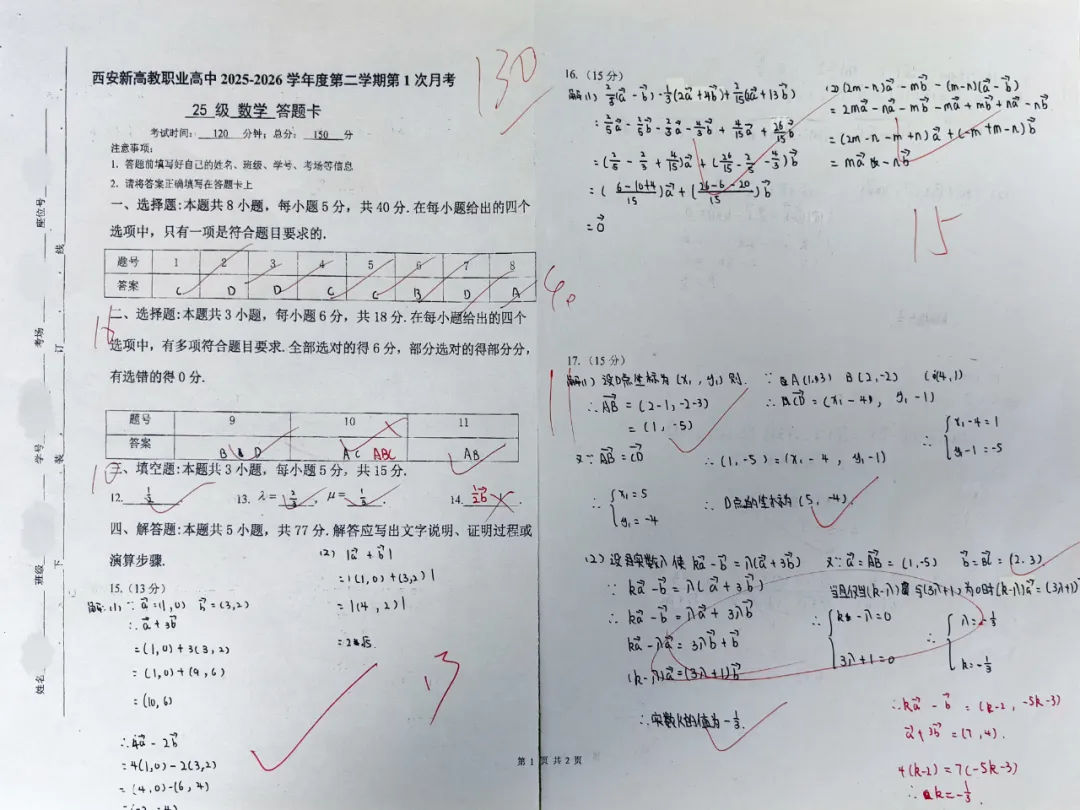 座位号
考场
学号
班级
姓名
线
订
装
下
西安新高教职业高中 2025-2026 学年度第二学期第 1 次月考
130
25 级 数学 答题卡
考试时间: 120 分钟; 总分: 150 分
注意事项:
1. 答题前填写好自己的姓名、班级、学号、考场等信息
2. 请将答案正确填写在答题卡上
一、选择题:本题共 8 小题, 每小题 5 分, 共 40 分. 在每小题给出的四个
选项中, 只有一项是符合题目要求的.
题号 1 2 3 4 5 6 7 8
答案 C D D C C B D A
40
二、选择题:本题共 3 小题, 每小题 6 分, 共 18 分. 在每小题给出的四个
选项中, 有多项符合题目要求. 全部选对的得 6 分, 部分选对的得部分分,
有选错的得 0 分.
题号 9 10 11
答案 B D AC ABC AB
10
三、填空题:本题共 3 小题, 每小题 5 分, 共 15 分.
12. 1/2 . 13. λ= 2/3 , μ= 1/3 . 14. 1/2 b⃗ .
四、解答题:本题共 5 小题, 共 77 分. 解答应写出文字说明、证明过程或
演算步骤.
15. (13 分)
解: (1) ∵ a⃗ = (1, 0) b⃗ = (3,2)
∴ a⃗ + 3b⃗
= (1, 0) + 3(3, 2)
= (1, 0) + (9, 6)
= (10, 6)
∴ 4a⃗ - 2b⃗
= 4(1, 0) - 2(3,2)
= (4, 0) - (6, 4)
(2) |a⃗ + b⃗|
= |(1, 0) + (3,2)|
= |(4, 2)|
= 2√5.
13
16. (15 分)
解: (1) 2/5(a⃗ - b⃗) - 1/3(2a⃗ + 4b⃗) + 2/15(2a⃗ + 13b⃗)
= 2/5a⃗ - 2/5b⃗ - 2/3a⃗ - 4/3b⃗ + 4/15a⃗ + 26/15b⃗
= (2/5 - 2/3 + 4/15)a⃗ + (26/15 - 2/5 - 4/3)b⃗
= (6-10+4/15)a⃗ + (26-6-20/15)b⃗
= 0⃗
(2) (2m-n)a⃗ - mb⃗ - (m-n)(a⃗ - b⃗)
= 2ma⃗ - na⃗ - mb⃗ - ma⃗ + mb⃗ + na⃗ - nb⃗
= (2m - n - m + n)a⃗ + (-m + m - n)b⃗
= ma⃗ - nb⃗
15
17. (15 分)
11
解: (1) 设D点坐标为 (x₁, y₁) 则. ∵ A(1,3) B(2,-2) C(4,1)
∴ AB⃗ = (2-1, -2-3) ∴ CD⃗ = (x₁-4, y₁-1)
= (1, -5) ∴ { x₁-4=1
y₁-1=-5
又∵ AB⃗ = CD⃗ ∴ (1, -5) = (x₁-4, y₁-1)
∴ { x₁=5
y₁=-4
∴ D点的坐标为 (5, -4).
(2) 设实数λ使 ka⃗ - b⃗ = λ(a⃗ + 3b⃗) 又∵ a⃗ = AB⃗ = (1,-5) b⃗ = BC⃗ = (2, 3).
∵ ka⃗ - b⃗ = λ(a⃗ + 3b⃗) 当且仅当(k-λ)与(3λ+1)为0时(k-λ)a⃗ = (3λ+1)
∴ ka⃗ - b⃗ = λa⃗ + 3λb⃗ ∴ { k-λ=0
3λ+1=0
∴ { λ=-1/3
k=-1/3
ka⃗ - λa⃗ = 3λb⃗ + b⃗
(k-λ)a⃗ = (3λ+1)b⃗
∴ 实数k的值为 -1/3.
∴ ka⃗ - b⃗ = (k-2, -5k-3)
a⃗ + 3b⃗ = (7, 4).
4(k-2) = 7(-5k-3)
∴ k = -1/3.
第 1 页 共 2 页